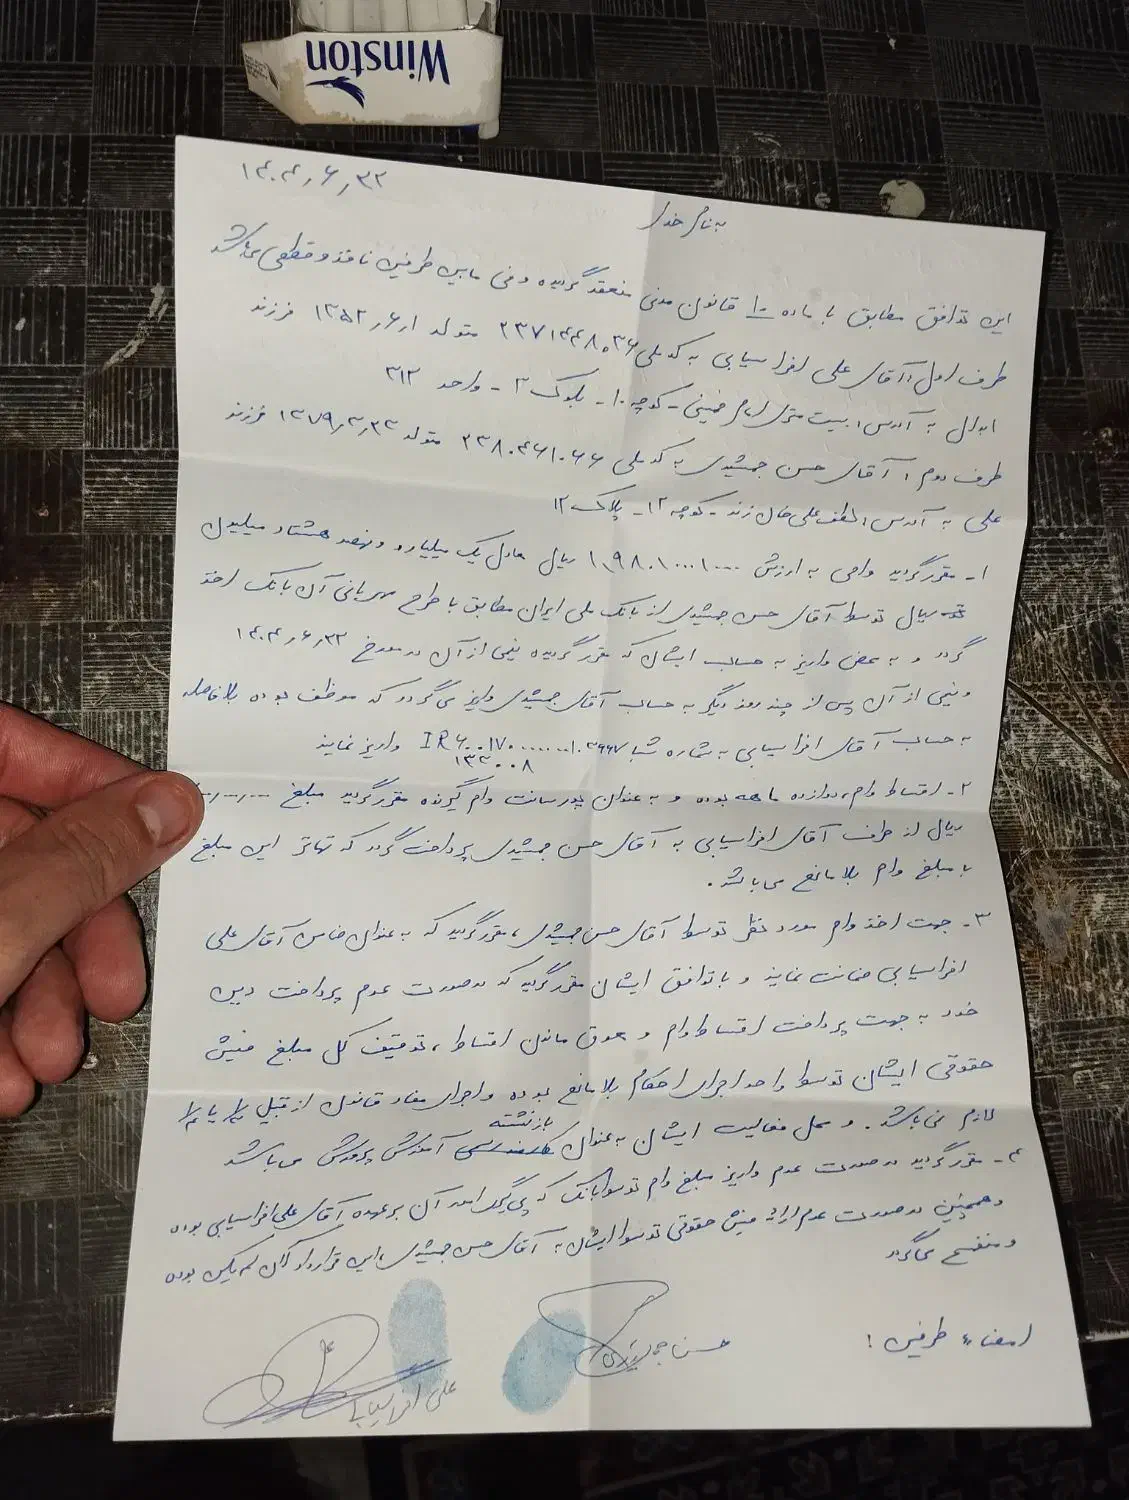 Winston
۱۴۰۴٫۶٫۲۲
به نام خدا
این توافق مطابق با ماده ۱۰ قانون مدنی منعقد گردیده و فی مابین طرفین نافذ و قطعی می‌باشد
طرف اول: آقای علی افراسیابی به کد ملی متولد ۱۳۵۲٫۶٫۱ فرزند
به آدرس: بیست متری امام خمینی - کوچه ۱۰ - بلوک ۳ - واحد ۳۱۲
طرف دوم: آقای حسن جمشیدی به کد ملی متولد فرزند
علی به آدرس: لطفعلی خان زند - کوچه ۱۲ - پلاک ۱۲
۱- مقرر گردید وامی به ارزش ریال معادل یک میلیارد و نهصد هشتاد میلیون
ریال توسط آقای حسن جمشیدی از بانک ملی ایران مطابق با طرح مهربانی آن بانک اخذ
گردد و به محض واریز به حساب ایشان که مقرر گردیده نیمی از آن در مورخ ۱۴۰۴٫۶٫۲۲
و نیمی از آن پس از چند روز دیگر به حساب آقای جمشیدی واریز می‌گردد که موظف بوده بلافاصله
به حساب آقای افراسیابی به شماره شبا واریز نماید
۱۳۲۰۰۸
۲- اقساط وام، دوازده ماهه بوده و به عنوان پورسانت وام گیرنده مقرر گردید مبلغ
ریال از طرف آقای افراسیابی به آقای حسن جمشیدی پرداخت گردد که تهاتر این مبلغ
با مبلغ وام بلامانع می‌باشد.
۳- جهت اخذ وام مورد نظر توسط آقای حسن جمشیدی، مقرر گردید که به عنوان ضامن آقای علی
افراسیابی ضمانت نماید و با توافق ایشان مقرر گردید که در صورت عدم پرداخت دین
خود به جهت پرداخت اقساط وام و معوق ماندن اقساط، توقیف کل مبلغ فیش
حقوقی ایشان توسط واحد اجرای احکام بلامانع بوده و اجرای مفاد قانون از قبیل ۱/۳ یا ۱/۴
لازم نمی‌باشد. و محل فعالیت ایشان به عنوان بازنشسته آموزش پرورش می‌باشد
۴- مقرر گردید در صورت عدم واریز مبلغ وام توسط بانک که پی گیری امور آن بر عهده آقای علی افراسیابی بوده
و همچنین در صورت عدم ارائه فیش حقوقی توسط ایشان به آقای حسن جمشیدی، این قرارداد کان لم یکن بوده
و منفسخ می‌گردد
امضاء طرفین:
حسن جمشیدی
علی افراسیابی